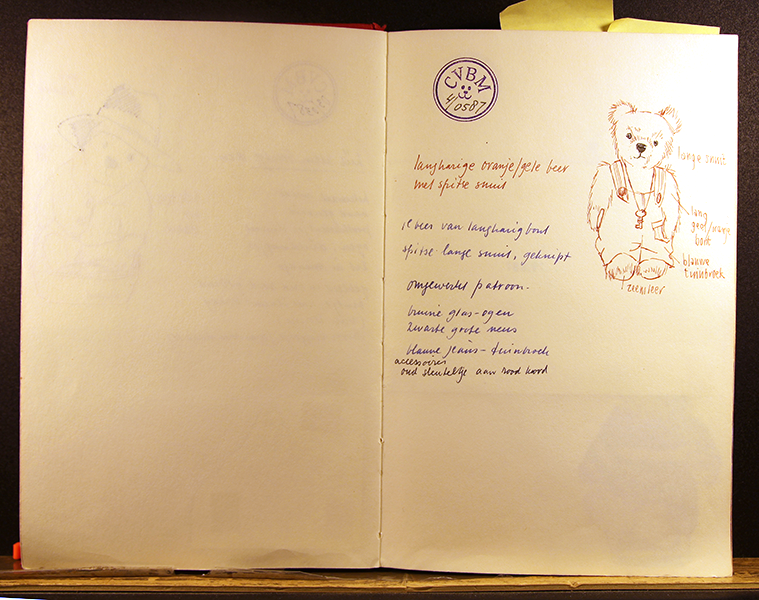 CVBM
4/0587
langharige oranje/gele beer
met spitse snuit
1e beer van langharig bont
spitse lange snuit, geknipt
omgewerkt patroon.
bruine glas-ogen
zwarte grote neus
blauwe jeans-tuinbroek
accessoires
oud sleuteltje aan rood koord
lange snuit
lang
geel/oranje
bont
blauwe
tuinbroek